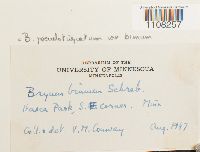 1108257
= B. pseudotriquetrum var. bimum
HERBARIUM OF THE
UNIVERSITY OF MINNESOTA
MINNEAPOLIS
Bryum bimum Schreb.
Itasca Park, S.E corner. Minn
Col. & det. V.M. Conway Aug. 1947